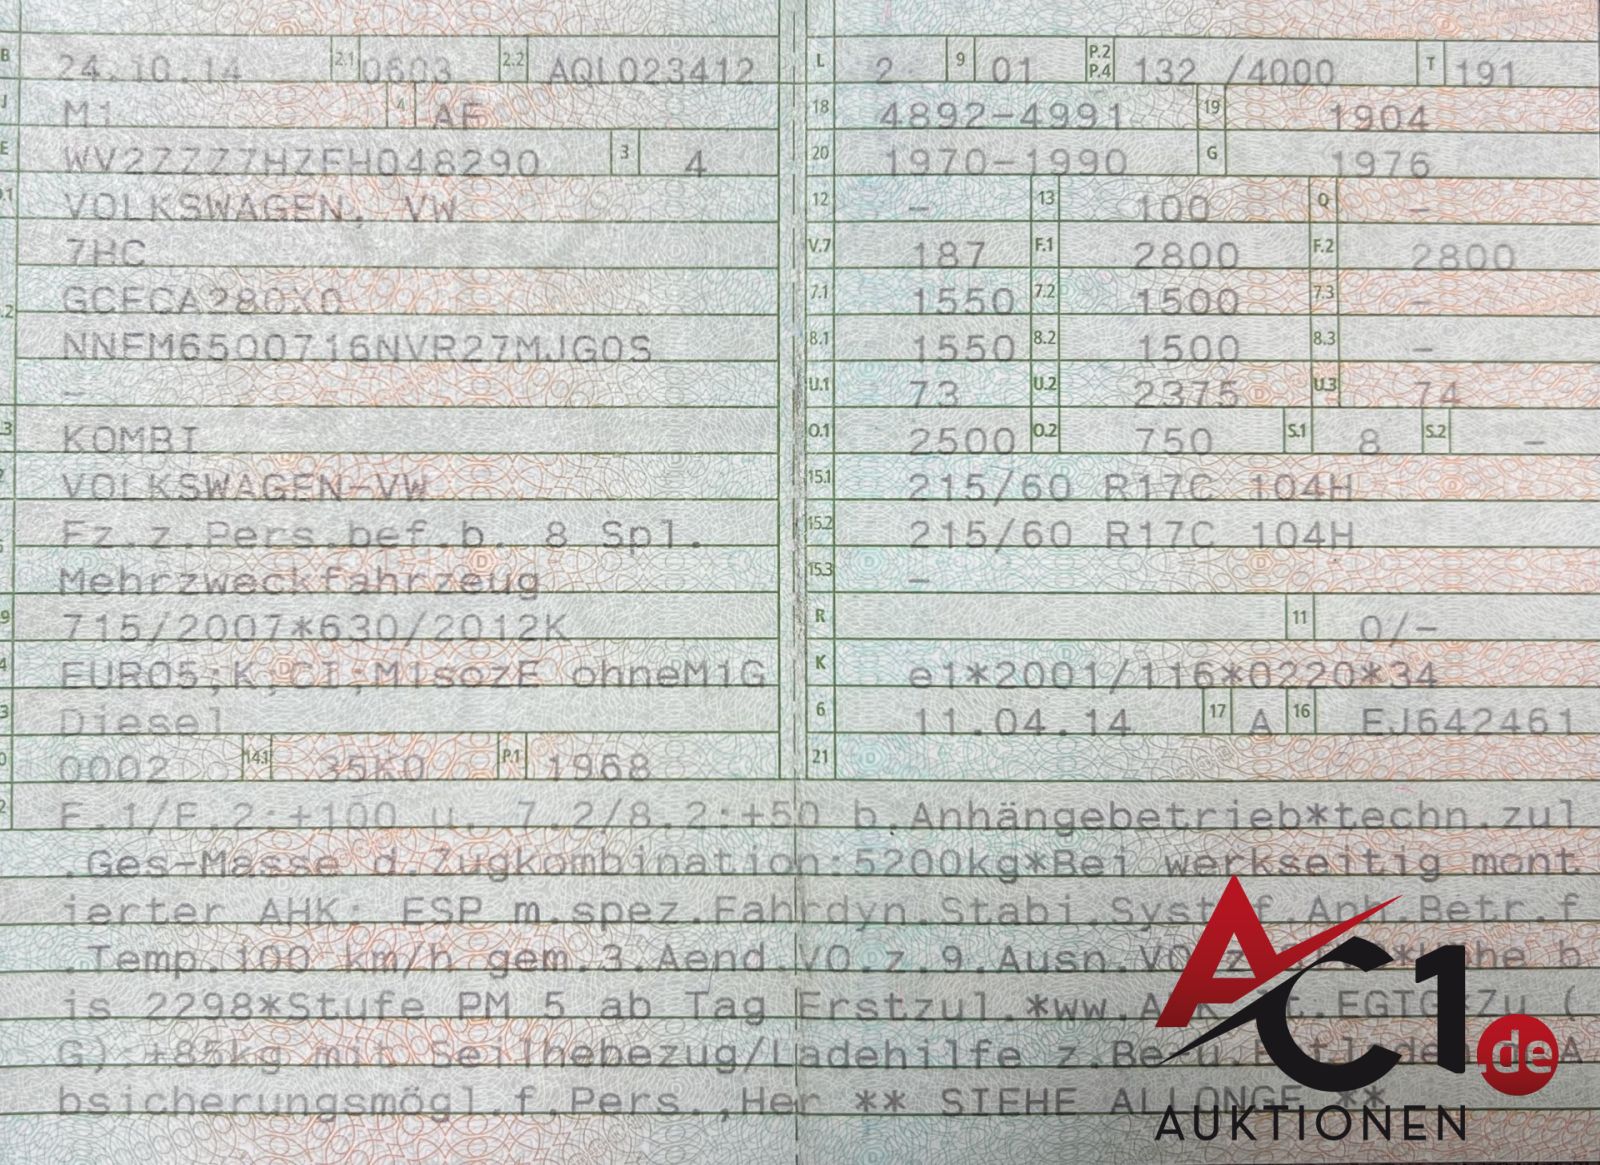 B 24.10.14 2.1 0603 2.2 AQL023412
J M1 4 AF
E WV2ZZZ7HZFH048290 3 4
VOLKSWAGEN, VW
7HC
GCFCA280X0
NNFM6500716NVR27MJG0S
–
KOMBI
VOLKSWAGEN-VW
Fz.z.Pers.bef.b. 8 Spl.
Mehrzweckfahrzeug
715/2007*630/2012K
EURO5;K;CI;M1sozE ohneM1G
Diesel
0002 14.1 35K0 P.1 1968
L 2 9 01 P.2 P.4 132 /4000 T 191
18 4892-4991 19 1904
20 1970-1990 G 1976
12 – 13 100 Q –
V.7 187 F.1 2800 F.2 2800
7.1 1550 7.2 1500 7.3 –
8.1 1550 8.2 1500 8.3 –
U.1 73 U.2 2375 U.3 74
O.1 2500 O.2 750 S.1 8 S.2 –
15.1 215/60 R17C 104H
15.2 215/60 R17C 104H
15.3 –
R 11 0/–
K e1*2001/116*0220*34
6 11.04.14 17 A 16 EJ642461
21
F.1/F.2:+100 u. 7.2/8.2:+50 b.Anhängebetrieb*techn.zul
.Ges-Masse d.Zugkombination:5200kg*Bei werkseitig mont
ierter AHK: ESP m.spez.Fahrdyn.Stabi.Syst f.Anh.Betr.f
.Temp.100 km/h gem.3.Aend.VO.z.9.Ausn.VO he b
is 2298*Stufe PM 5 ab Tag Erstzul.*ww. EGTG*Zu (
G) +85kg mit Seilhebezug/Ladehilfe z.Be
bsicherungsmögl.f.Pers.,Her ** SIEHE ALLONGE **
AC1.de
AUKTIONEN